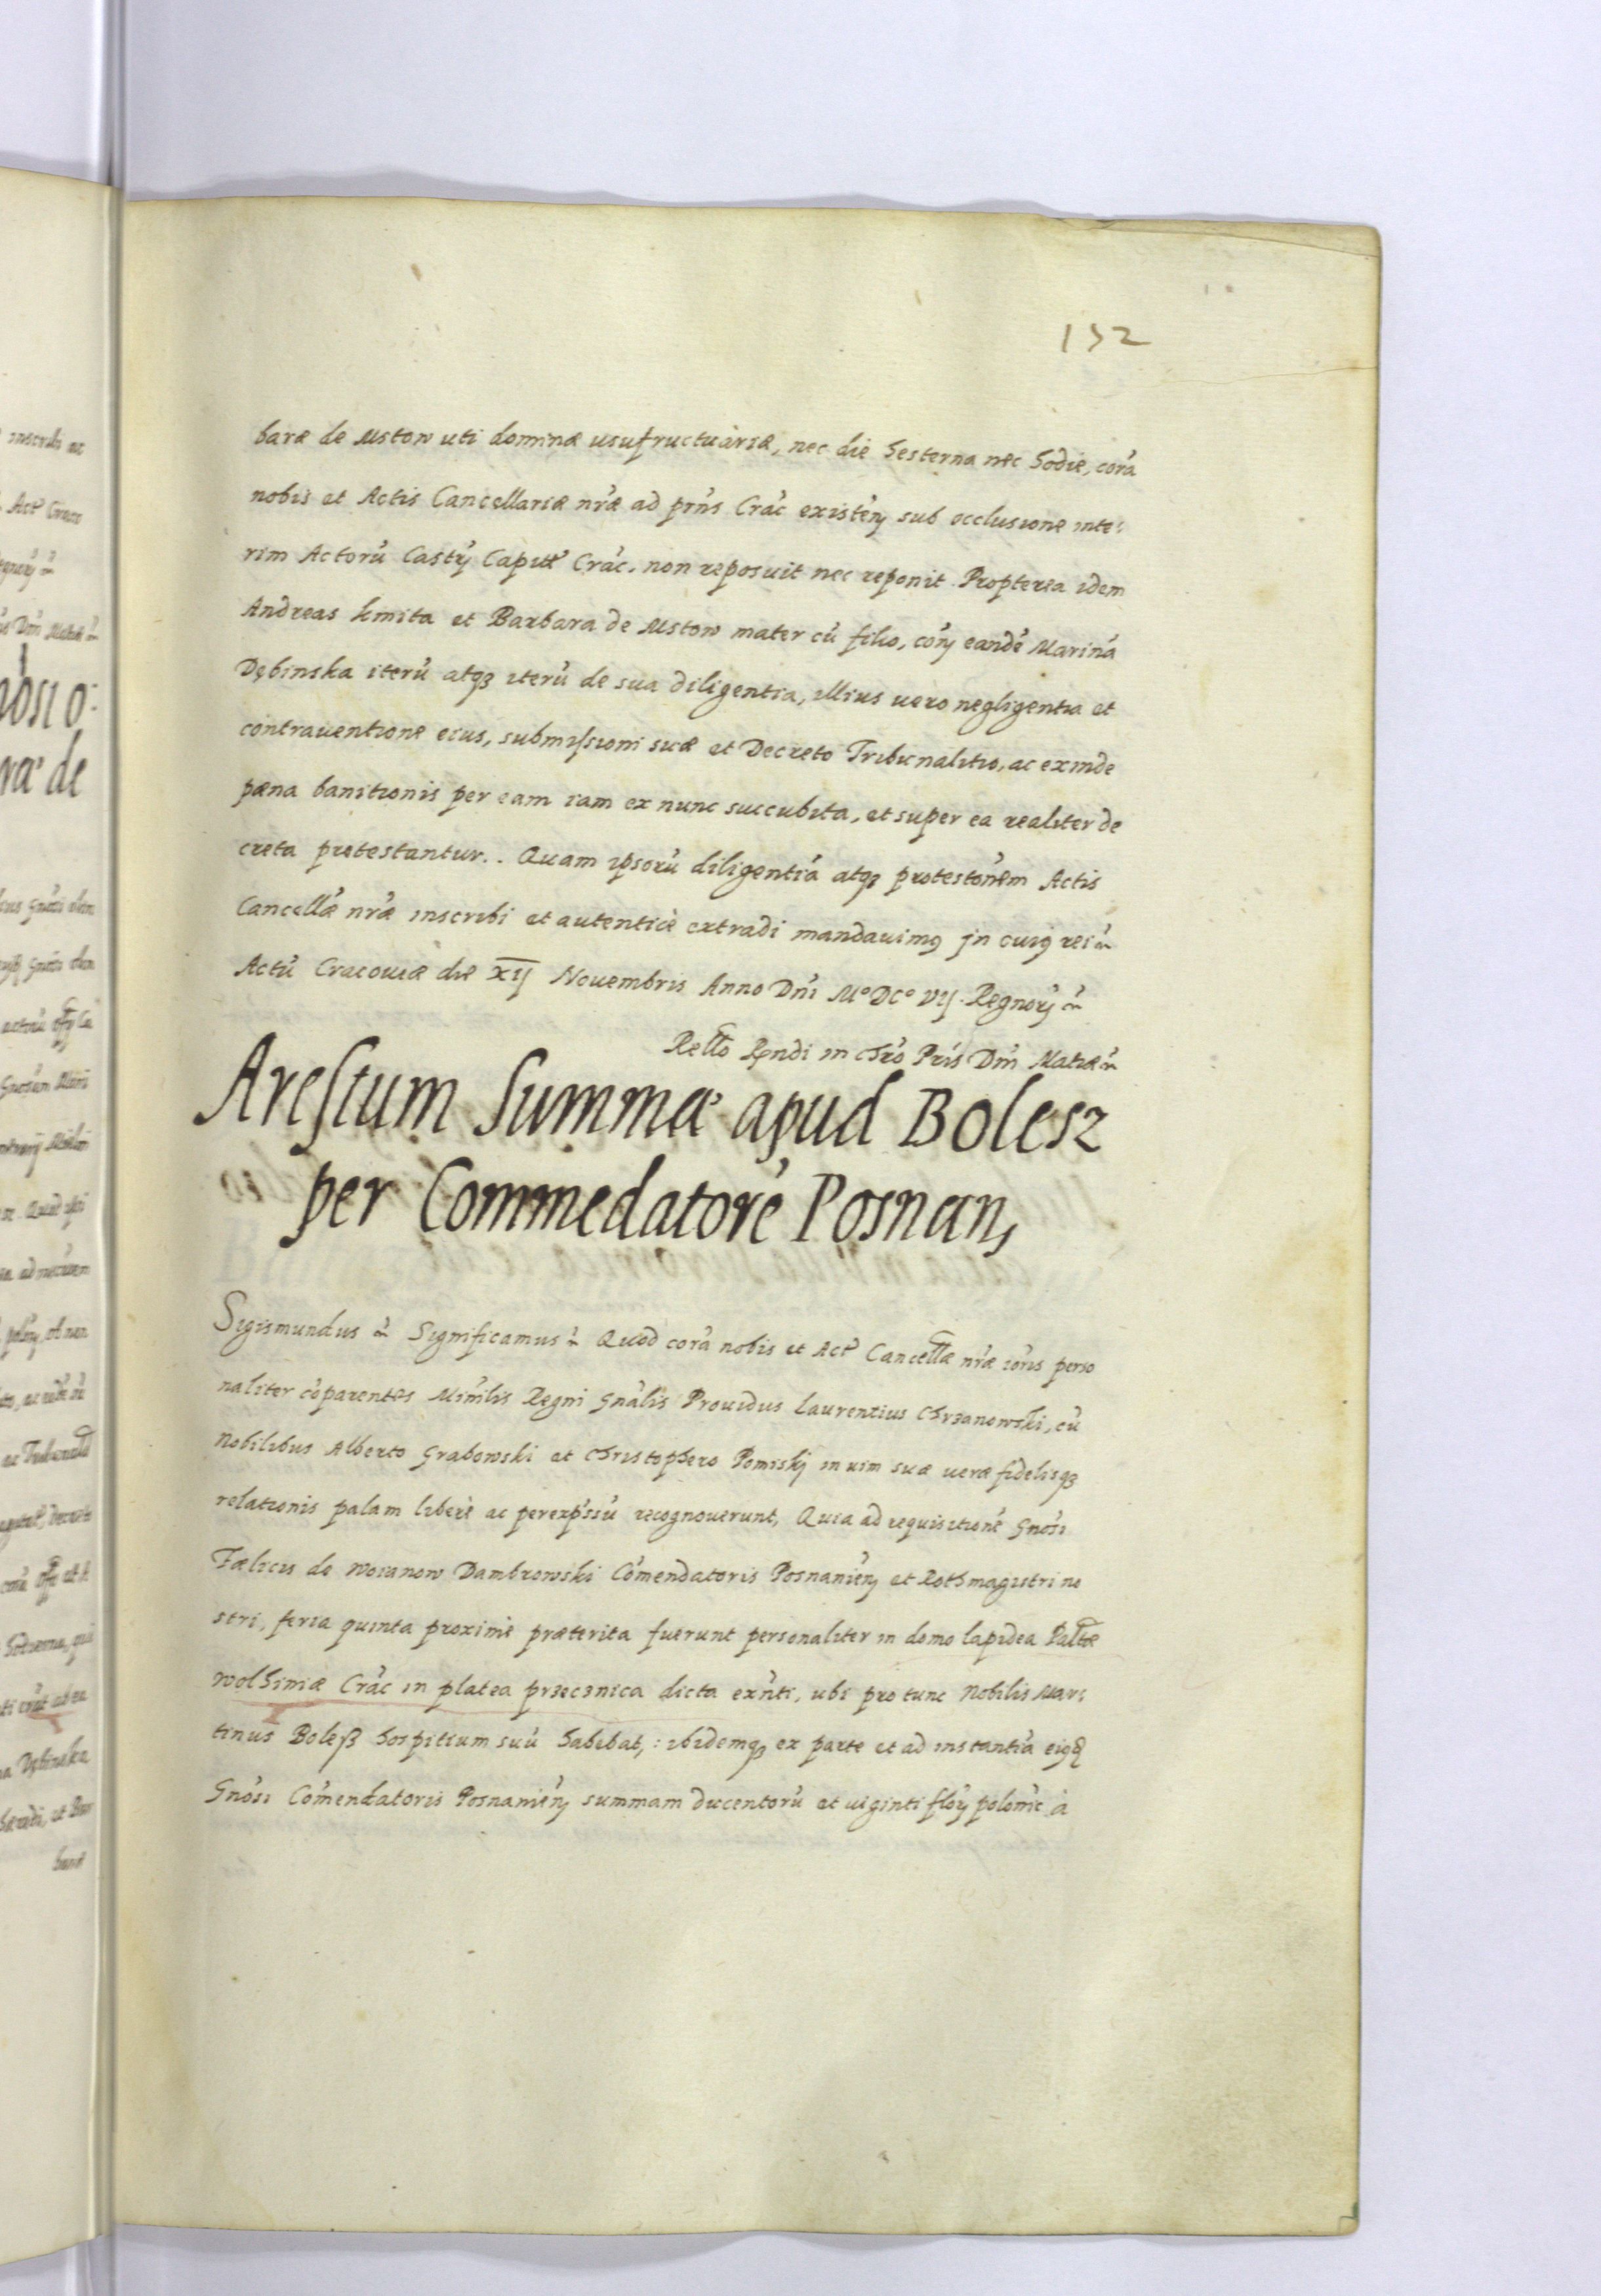 132
baræ de Mstow uti dominæ usufructuariæ, nec die hesterna nec hodie, corá
nobis et Actis Cancellariæ nr̃æ ad prñs Crac̃ existeñ sub occlusione inte:
rim Actorú Castrẽ Capitł Crac̃. non reposuit nec reponit. Propterea idem
Andreas kmita et Barbara de Mstow mater cú filio, corỹ eandé Mariná
Dębinska iterú atqꝫ iterú de sua diligentia, illius uero negligentia et
contrauentione eius, submissioni suæ et Decreto Tribunalitio, ac exinde
pæna banitionis per eam iam ex nunc succubita, et super ea realiter de
creta protestantur.. Quam ipsorú diligentiá atqꝫ protestoñem Actis
Cancellæ nr̃æ inscribi et autenticè extradi mandauimꝰ jn cuiꝰ rei ~
Actú Cracouiæ die XIJ Nouembris Anno Dñi M° DC° VIJ. Regnorỹ ~
Relło Rñdi in Chro Pris Dñi Matiæ ~
Arestum Summæ apud Bolesz
per Commedatoré Posnan,
Sigismundus ~ Significamus ~ Quod corá nobis et Act̃ Cancellæ nr̃æ iõris perso
naliter cóparentes Miñlis Regni Gñalis Prouidus Laurentius Chrzanowski, cú
Nobilibus Alberto Grabowski et Christophero Pomiskj in uim suæ ueræ fidelisqꝫ
relationis palam liberè ac perexpssú recognouerunt, Quia ad requisitioné Gñosi
Fælicis de Woianow Dambrowski Cómendatoris Posnanieñ et Rothmagistri no
stri, feria quinta proximè præterita fuerunt personaliter in domo lapidea Pałtæ
Wolhiniæ Crac̃ in platea przecznica dicta exñti, ubi pro tunc Nobilis Mar:
tinus Boleß hospitium suú habebat,: ibidemqꝫ ex parte et ad instantiá eiꝰd
Gñosi Cómendatoris Posnanieñ summam ducentorú et uiginti floỹ poloñic à